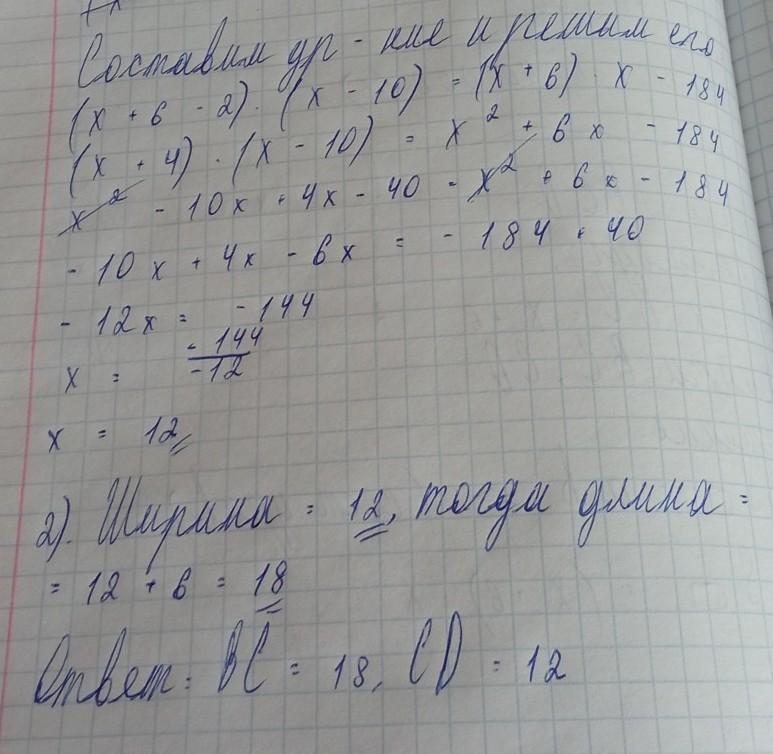 Составим ур-ние и решим его
(x + 6 - 2) · (x - 10) = (x + 6) · x - 184
(x + 4) · (x - 10) = x² + 6x - 184
x² - 10x + 4x - 40 - x² + 6x - 184
- 10x + 4x - 6x = - 184 + 40
- 12x = - 144
x = - 144 / - 12
x = 12
2). Ширина = 12, тогда длина =
= 12 + 6 = 18
Ответ: BC = 18, CD = 12